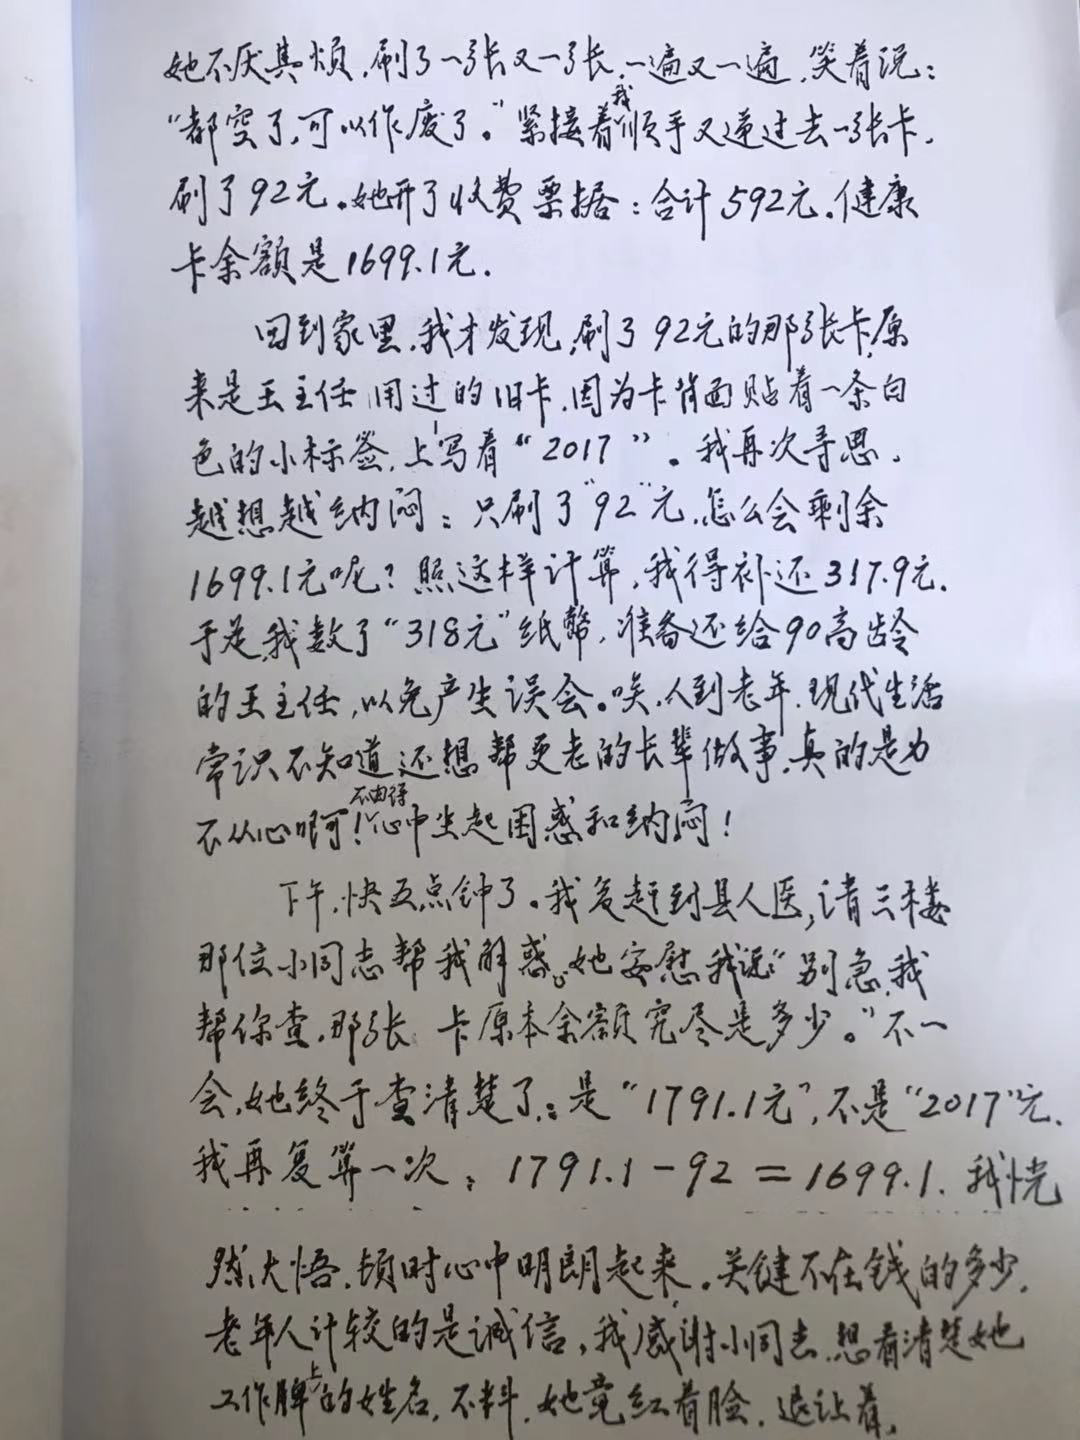 她不厌其烦,刷了一张又一张,一遍又一遍,笑着说:
“都空了,可以作废了。”紧接着我顺手又递过去一张卡,
刷了92元。她开了收费票据:合计592元.健康
卡余额是1699.1元.
回到家里,我才发现,刷了92元的那张卡,原
来是王主任用过的旧卡,因为卡背面贴着一条白
色的小标签,上写着“2017”。我再次寻思,
越想越纳闷:只刷了“92”元,怎么会剩余
1699.1元呢?照这样计算,我得补还317.9元.
于是,我数了“318元”纸幣,准备还给90高龄
的王主任,以免产生误会。唉,人到老年,现代生活
常识不知道还想帮更老的长辈做事,真的是力
不从心啊!不由得心中生起困惑和纳闷!
下午,快五点钟了。我急赶到县人医,请三楼
那位小同志帮我解惑。她安慰我说:“别急,我
帮你查,那张 卡原本余额究尽是多少。”不一
会,她终于查清楚了:是“1791.1元”,不是“2017”元.
我再复算一次:1791.1-92=1699.1.我恍
然大悟,顿时心中明朗起来.关键不在钱的多少,
老年人计较的是诚信,我感谢小同志,想看清楚她
工作牌上的姓名,不料,她竟红着脸,退让着,